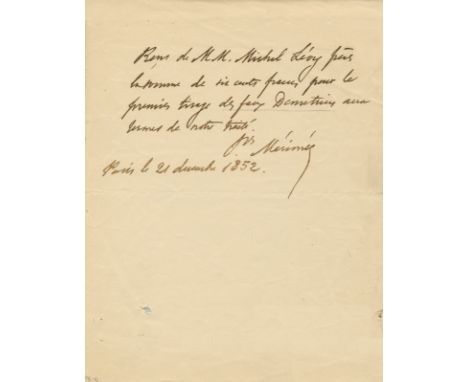 Reçu de M.M. Michel Lévy frères
la somme de six cents francs pour le
premier tirage des faux Demetrius aux
termes de notre traité.
Pr Mérimée
Paris le 21 decembre 1852.